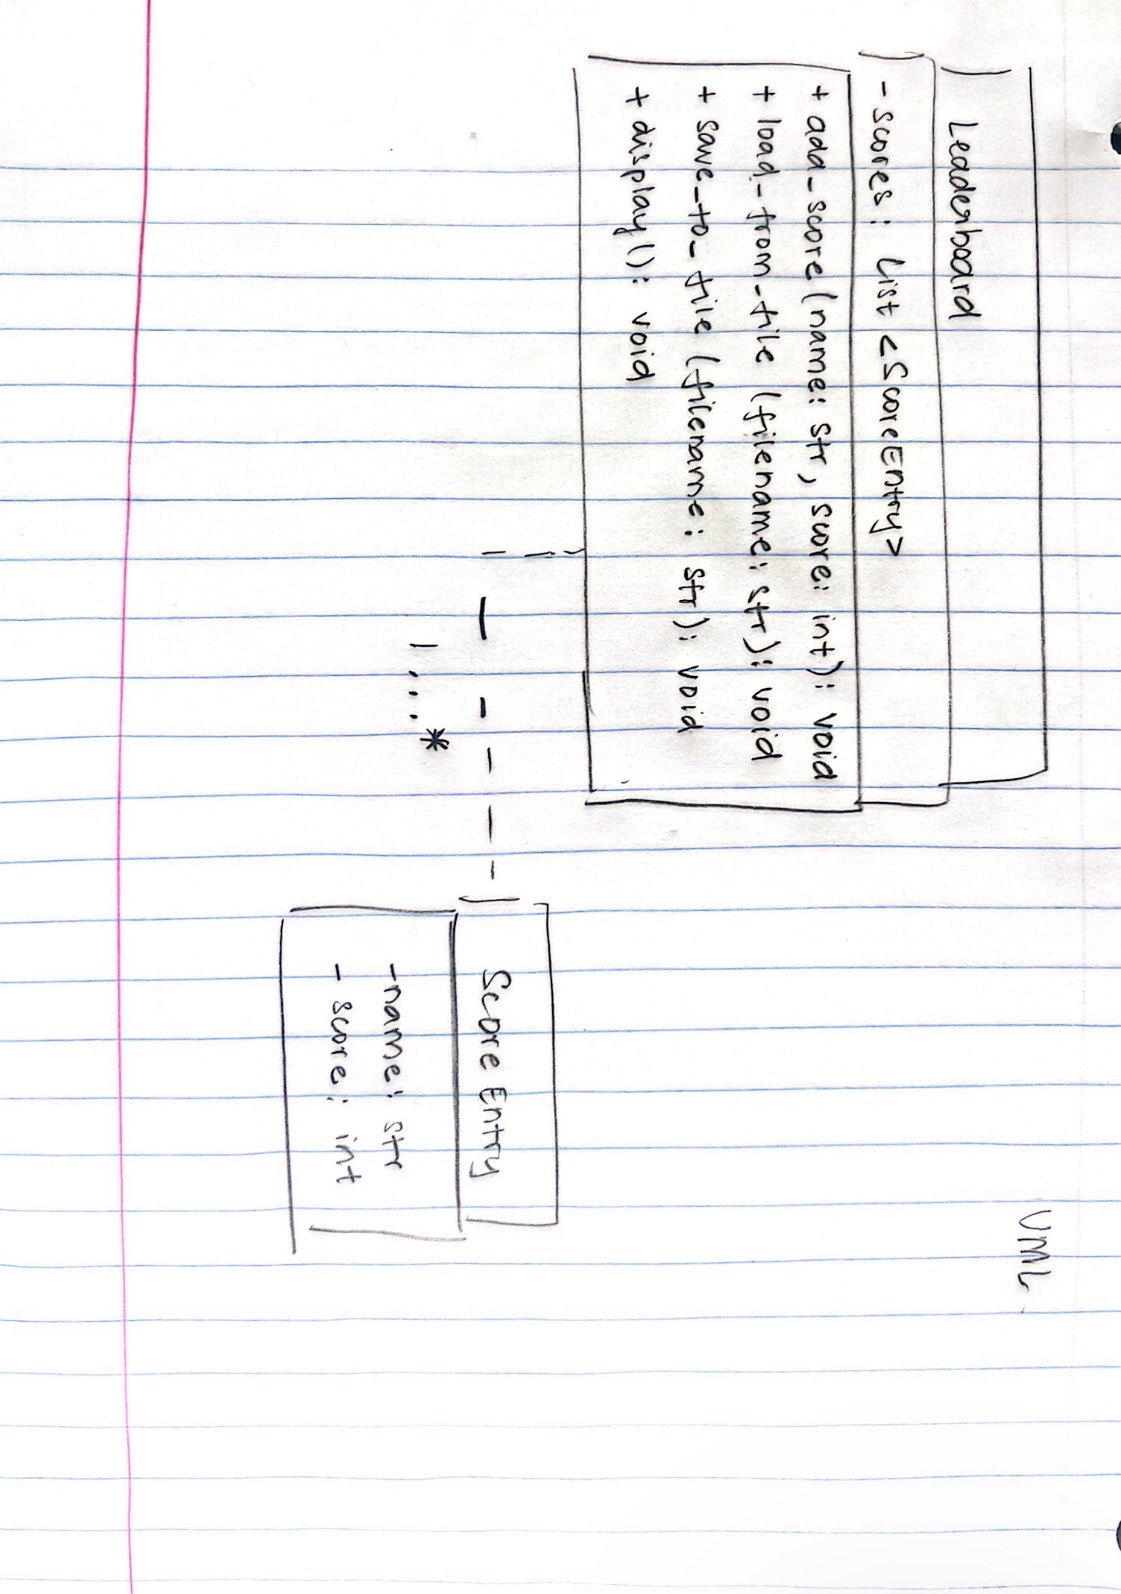 UML
Leaderboard
- scores: List <ScoreEntry>
+ add_score(name: str, score: int): void
+ load_from_file (filename: str): void
+ save_to_file (filename: str): void
+ display(): void
1...*
Score Entry
-name: str
- score: int